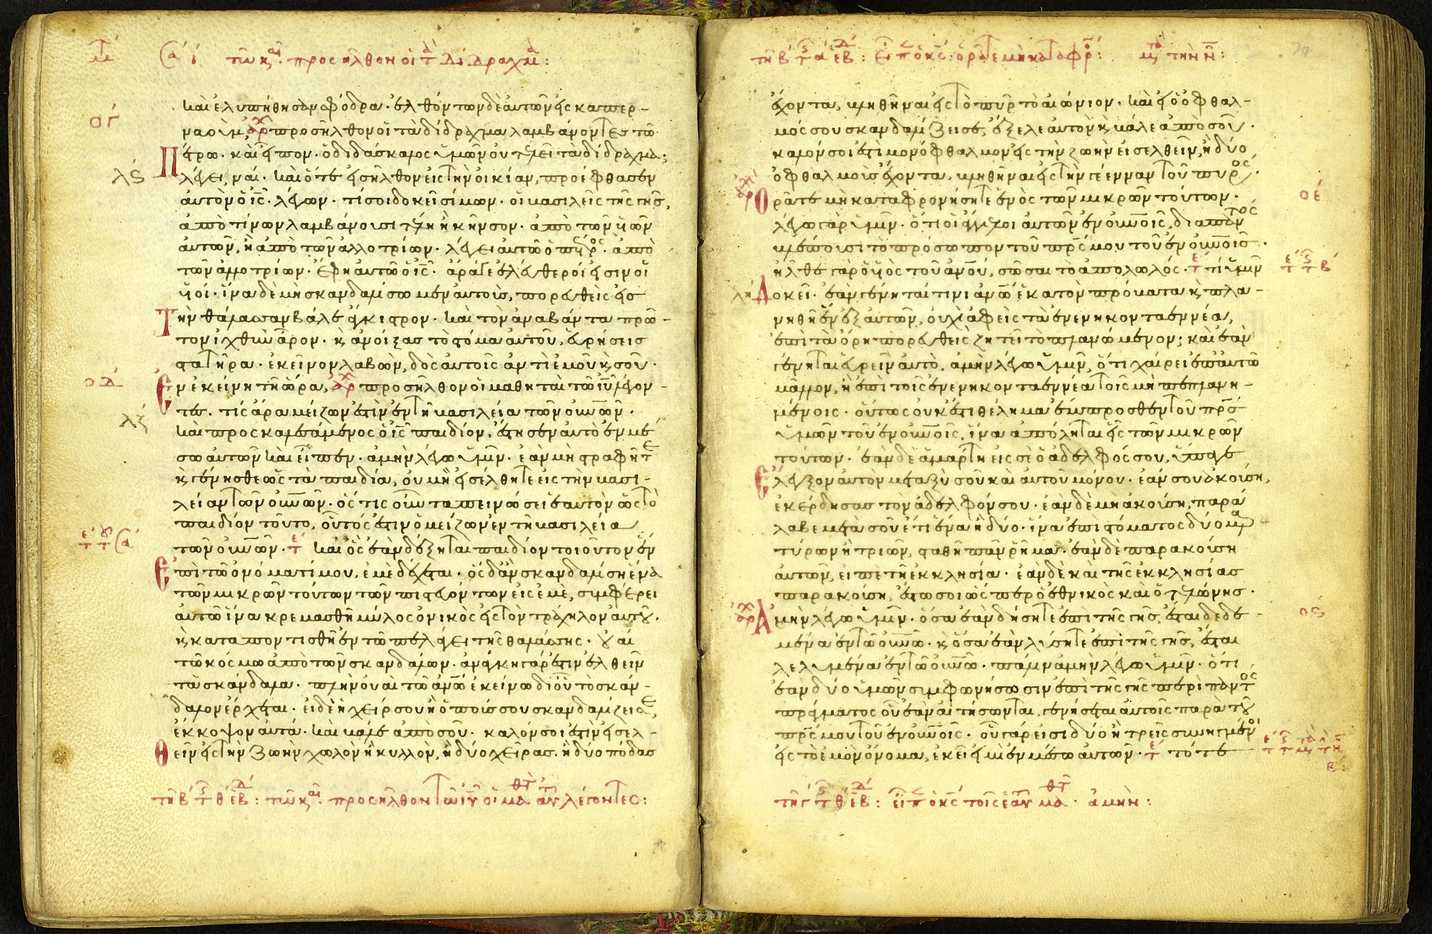 καὶ ἐλυπήθησαν σφόδρα· ἐλθόντων δὲ αὐτῶν εἰς καπερ-
ναούμ, προσῆλθον οἱ τὰ δίδραχμα λαμβάνοντες τῷ
Πέτρω· καὶ εἶπον· ὁ διδάσκαλος ὑμῶν οὐ τελεῖ τὰ δίδραχμα;
λέγει, ναί· καὶ ὅτε εἰσῆλθον εἰς τὴν οἰκίαν, προέφθασεν
αὐτὸν ὁ ις· λέγων· τί σοι δοκεῖ σίμων· οἱ βασιλεῖς τῆς γῆς,
ἀπὸ τίνων λαμβάνουσι τέλη ἢ κῆνσον· ἀπὸ τῶν υἱῶν
αὐτῶν, ἢ ἀπὸ τῶν ἀλλοτρίων· λέγει αὐτῶ ὁ πέτρος· ἀπὸ
τῶν ἀλλοτρίων· ἔφη αὐτῶ ὁ ις· ἄραγε ἐλεύθεροί εἰσιν οἱ
υἱοί· ἵνα δὲ μὴ σκανδαλίσωμεν αὐτοὺς, πορευθεὶς εἰς
Τὴν θάλασσαν βάλε ἄγκιστρον· καὶ τὸν ἀναβάντα πρῶ-
τον ἰχθὺν ἆρον· κ ἀνοίξας τὸ στόμα αὐτοῦ, εὑρήσεις
στατῆρα· ἐκεῖνον λαβὼν, δὸς αὐτοῖς ἀντὶ ἐμοῦ κ σοῦ·
Εν ἐκείνη τῆ ὥρα, προσῆλθον οἱ μαθηταὶ τῶ ιυ λέγον-
τες· τίς ἄρα μείζων ἐστὶν ἐν τῆ βασιλεία τῶν οὐνῶν·
καὶ προσκαλεσάμενος ὁ ις παιδίον, ἔστησεν αὐτὸ ἐν μέ-
σω αὐτῶν καὶ εἶπεν· ἀμὴν λέγω ὑμῖν· ἐὰν μὴ στραφῆτε
κ γένησθε ὡς τὰ παιδία, οὐ μὴ εἰσέλθητε εἰς τὴν βασι-
λείαν τῶν οὐνῶν· ὅστις οὖν ταπεινώσει ἑαυτὸν ὡς τὸ
παιδίον τοῦτο, οὗτός ἐστιν ὁ μείζων ἐν τῆ βασιλεία
τῶν οὐνῶν· καὶ ὃς ἐὰν δέξηται παιδίον τοιοῦτον ἓν
Επὶ τῶ ὀνόματί μου, ἐμὲ δέχεται· ὃς δ' ἂν σκανδαλίση ἕνα
τῶν μικρῶν τούτων τῶν πιστευόντων εἰς ἐμὲ, συμφέρει
αὐτῶ ἵνα κρεμασθῆ μύλος ὀνικὸς εἰς τὸν τράχηλον αὐτοῦ·
κ καταποντισθῆ ἐν τῶ πελάγει τῆς θαλάσσης· οὐαὶ
τῶ κόσμω ἀπὸ τῶν σκανδάλων· ἀνάγκη γάρ ἐστιν ἐλθεῖν
τὰ σκάνδαλα· πλὴν οὐαὶ τῶ ἀνω ἐκείνω δι' οὗ τὸ σκάν-
δαλον ἔρχεται· εἰ δὲ ἡ χείρ σου ἢ ὁ πούς σου σκανδαλίζει σε,
ἔκκοψον αὐτὰ· καὶ βάλε ἀπὸ σοῦ· καλόν σοι ἐστὶν εἰσελ-
θεῖν εἰς τὴν ζωὴν χωλὸν ἢ κυλλὸν, ἢ δύο χεῖρας ἢ δύο πόδας
ἔχοντα, βληθῆναι εἰς τὸ πῦρ τὸ αἰώνιον· καὶ εἰ ὁ ὀφθαλ-
μός σου σκανδαλίζει σε, ἔξελε αὐτὸν κ βάλε ἀπὸ σοῦ·
καλόν σοι ἐστὶ μονόφθαλμον εἰς τὴν ζωὴν εἰσελθεῖν, ἢ δύο
ὀφθαλμοὺς ἔχοντα, βληθῆναι εἰς τὴν γέενναν τοῦ πυρός·
Ορᾶτε μὴ καταφρονήσητε ἑνὸς τῶν μικρῶν τούτων·
λέγω γὰρ ὑμῖν· ὅτι οἱ ἄγγελοι αὐτῶν ἐν οὐνοῖς, διαπαντὸς
βλέπουσι τὸ πρόσωπον τοῦ πρς μου τοῦ ἐν οὐνοῖς·
ἦλθε γὰρ ὁ υἱὸς τοῦ ἀνου, σῶσαι τὸ ἀπολωλός· τί ὑμῖν
Δοκεῖ· ἐὰν γένηταί τινι ἀνω ἑκατὸν πρόβατα κ πλα-
νηθῆ ἓν ἐξ αὐτῶν, οὐχὶ ἀφεὶς τὰ ἐνενηκονταεννέα,
ἐπὶ τὰ ὄρη πορευθεὶς ζητεῖ τὸ πλανώμενον; καὶ ἐὰν
γένηται εὑρεῖν αὐτὸ, ἀμὴν λέγω ὑμῖν, ὅτι χαίρει ἐπ' αὐτῶ
μᾶλλον, ἢ ἐπὶ τοῖς ἐνενηκονταεννέα τοῖς μὴ πεπλανη-
μένοις· οὕτως οὐκ ἔστι θέλημα ἔμπροσθεν τοῦ πρς
ὑμῶν τοῦ ἐν οὐνοῖς, ἵνα ἀπόληται εἷς τῶν μικρῶν
τούτων· ἐὰν δὲ ἁμάρτη εἰς σὲ ὁ ἀδελφός σου, ὕπαγε
Ελεγξον αὐτὸν μεταξὺ σοῦ καὶ αὐτοῦ μόνου· ἐάν σου ἀκούση,
ἐκέρδησας τὸν ἀδελφόν σου· ἐὰν δὲ μὴ ἀκούση, παρά-
λαβε μετὰ σοῦ ἔτι ἕνα ἢ δύο· ἵνα ἐπὶ στόματος δύο μαρ-
τύρων ἢ τριῶν, σταθῆ πᾶν ῥῆμα· ἐὰν δὲ παρακούση
αὐτῶν, εἰπὲ τῆ ἐκκλησία· ἐὰν δὲ καὶ τῆς ἐκκλησίας
παρακούση, ἔστω σοι ὡς περ ὁ ἐθνικὸς καὶ ὁ τελώνης·
Αμὴν λέγω ὑμῖν· ὅσα ἐὰν δήσητε ἐπὶ τῆς γῆς, ἔσται δεδε-
μένα ἐν τῶ οὐνω· κ ὅσα ἐὰν λύσητε ἐπὶ τῆς γῆς, ἔσται
λελυμένα ἐν τῶ οὐνω· πάλιν ἀμὴν λέγω ὑμῖν· ὅτι
ἐὰν δύο ὑμῶν συμφωνήσωσιν ἐπὶ τῆς γῆς περὶ παντὸς
πράγματος οὗ ἐὰν αἰτήσωνται, γενήσεται αὐτοῖς παρὰ τοῦ
πρς μου τοῦ ἐν οὐνοῖς· οὗ γάρ εἰσι δύο ἢ τρεῖς συνηγμένοι
εἰς τὸ ἐμὸν ὄνομα, ἐκεῖ εἰμὶ ἐν μέσω αὐτῶν· τότε